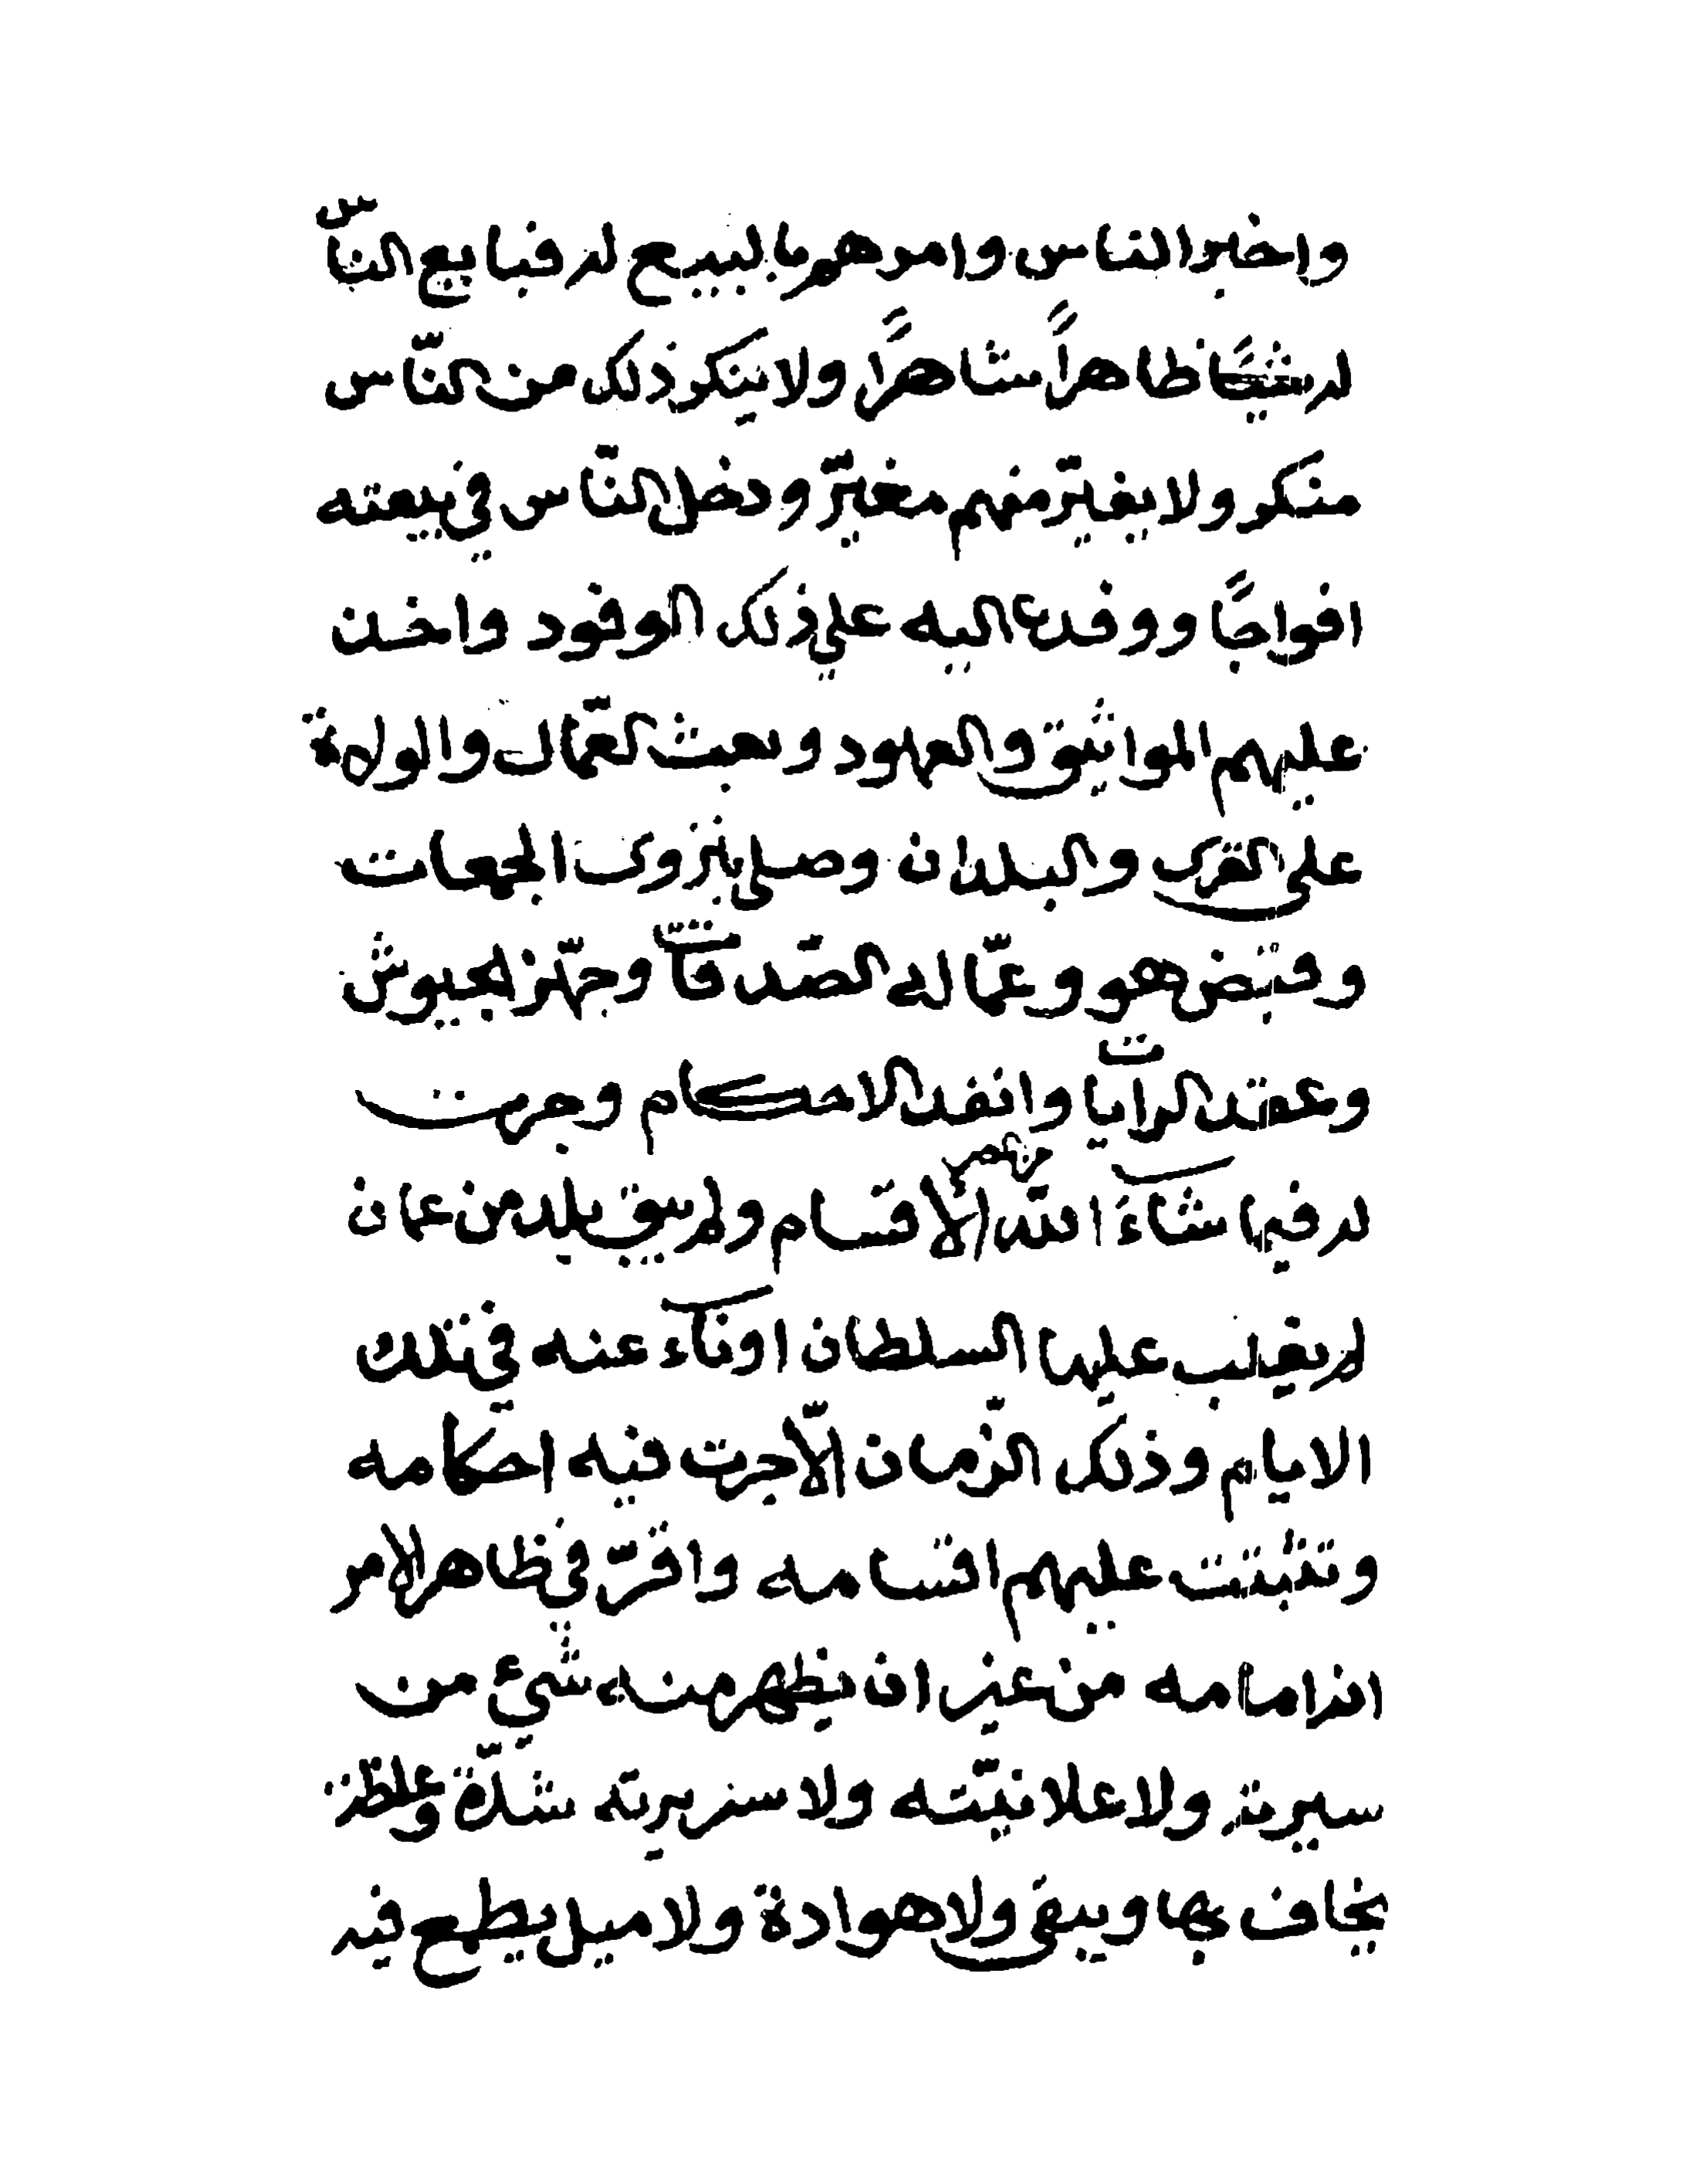 واخبر الناس وامرهم بالبيع له فبايع الناس
له شيًّا ظاهراً شاهراً ولا ينكر ذلك من النّاس
منكر ولا يغيّر منهم مغيّر ودخل النّاس في بيعته
افواجًا ووفدت اليه على ذلك الوفود واخذ
عليهم المواثيق والعهود وبعث العمّال والولاة
على القرى والبلدان وصلى بنزوى الجمعات
وقبض هو وعمّاله الصّدقات وجهّز الجيوش
وعقد الرايات وانفذ الاحكام وجرت
له فيما شاء الله الاقسام ولم يبق بلد من عمان
لم يغلب عليها السلطان اوناء عنه في تلك
الايام وذلك الزّمان الّا جرت فيه احكامه
وتثبتت عليهم اقسامه واقرّ في ظاهر الامر
انه امامه من غير ان يظهر منه شيئ من
سيرته ولا علانيّته ولا سريرته شدّة وغلظة
يخاف بها ويبقى ولا هوادة ولا ميل يطمع فيه